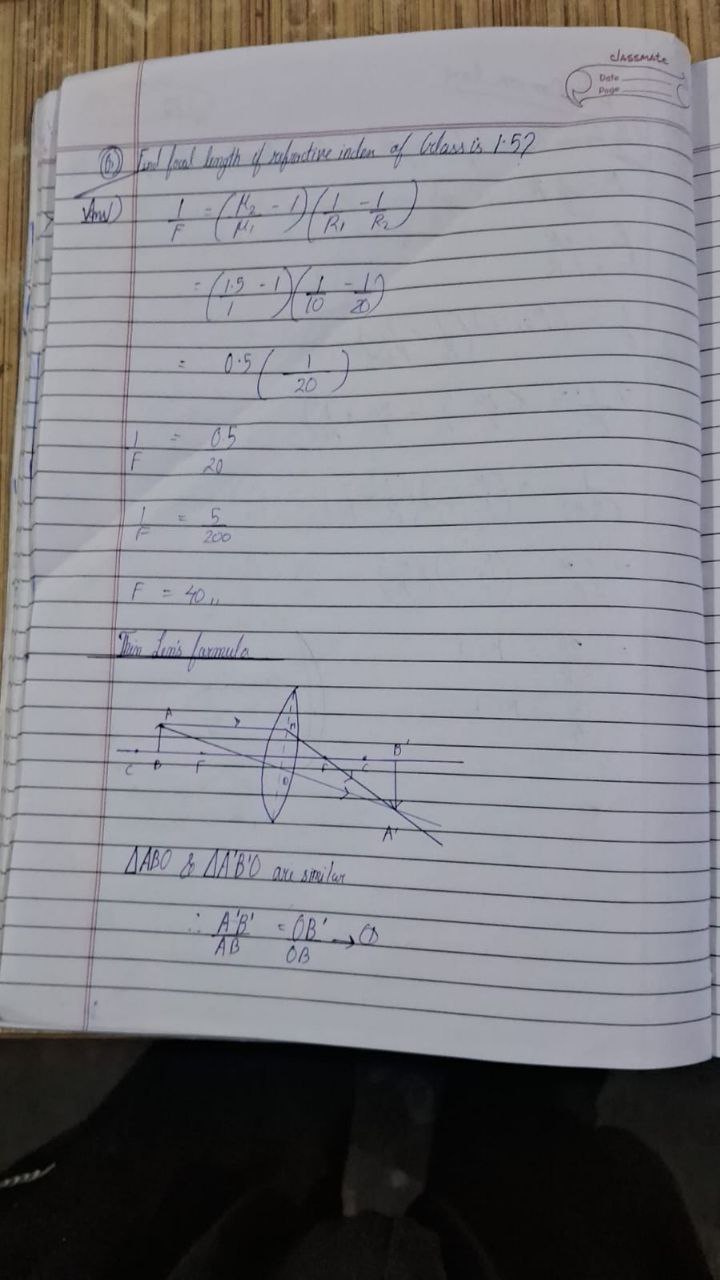 classmate
Date
Page
Q) Find focal length if refractive index of Glass is 1.5?
Ans) 1/F = (μ2/μ1 - 1)(1/R1 - 1/R2)
= (1.5/1 - 1)(1/10 - 1/20)
= 0.5 (1/20)
1/F = 0.5/20
1/F = 5/200
F = 40,,
Thin Lens formula
A
M
C B F O F C B'
A'
ΔABO & ΔA'B'O are similar
∴ A'B'/AB = OB'/OB → ①